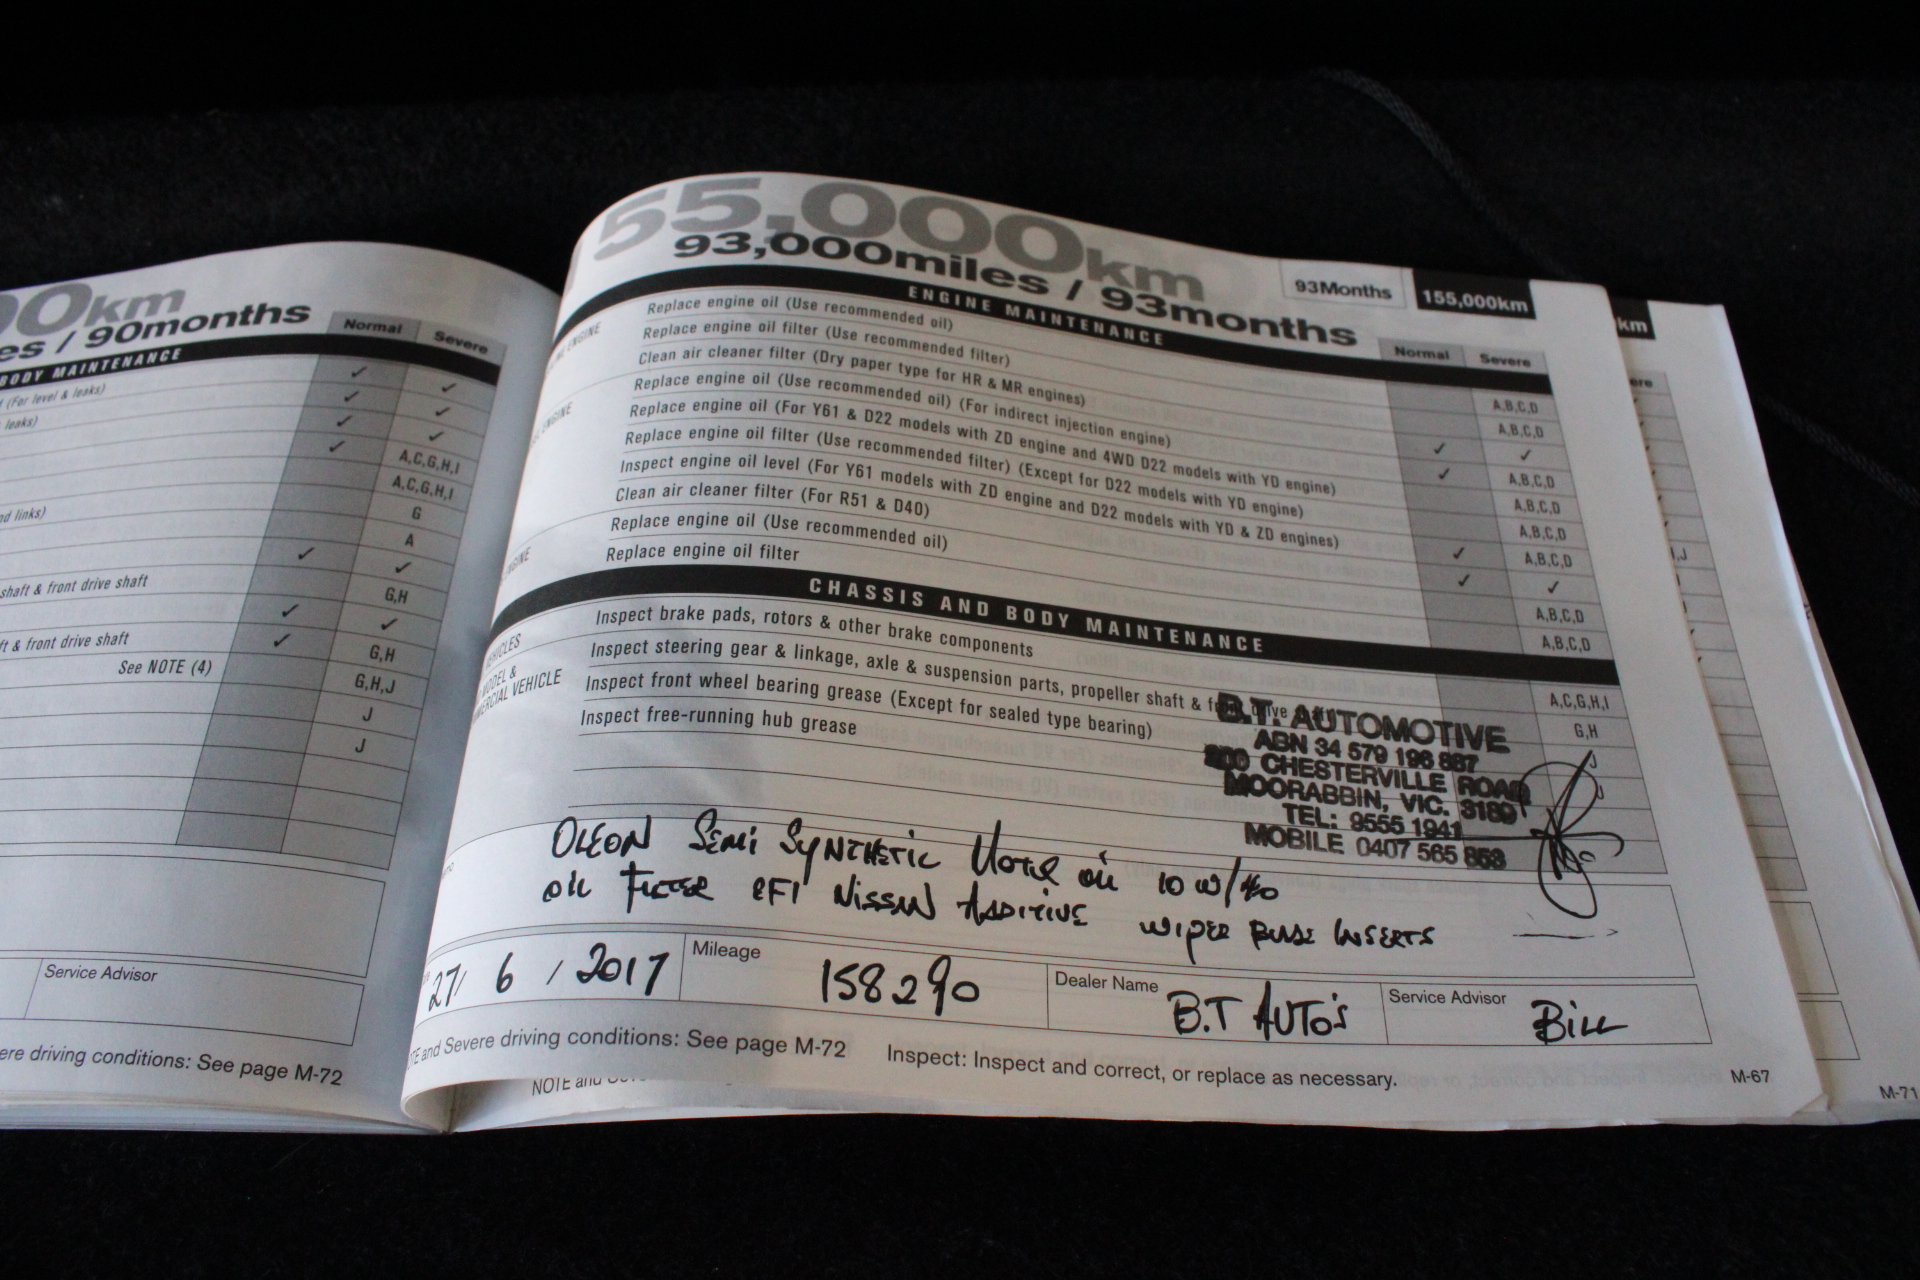 0km
es / 90months
Normal Severe
BODY MAINTENANCE
(For level & leaks) ✓ ✓
leaks) ✓ ✓
✓ ✓
✓ A,C,G,H,I
A,C,G,H,I
nd links) G
A
✓ ✓
shaft & front drive shaft G,H
✓ ✓
ft & front drive shaft ✓ G,H
See NOTE (4) G,H,J
J
J
Service Advisor
ere driving conditions: See page M-72
55,000km
93,000miles / 93months
93Months 155,000km
km
ENGINE MAINTENANCE
Normal Severe
ENGINE
Replace engine oil (Use recommended oil) A,B,C,D
Replace engine oil filter (Use recommended filter) A,B,C,D
Clean air cleaner filter (Dry paper type for HR & MR engines) ✓ ✓
ENGINE
Replace engine oil (Use recommended oil) (For indirect injection engine) ✓ A,B,C,D
Replace engine oil (For Y61 & D22 models with ZD engine and 4WD D22 models with YD engine) A,B,C,D
Replace engine oil filter (Use recommended filter) (Except for D22 models with YD engine) A,B,C,D
Inspect engine oil level (For Y61 models with ZD engine and D22 models with YD & ZD engines) ✓ A,B,C,D
Clean air cleaner filter (For R51 & D40) ✓ ✓
ENGINE
Replace engine oil (Use recommended oil) A,B,C,D
Replace engine oil filter A,B,C,D
CHASSIS AND BODY MAINTENANCE
VEHICLES
Inspect brake pads, rotors & other brake components A,C,G,H,I
MODEL &
VEHICLE
Inspect steering gear & linkage, axle & suspension parts, propeller shaft & front drive G,H
Inspect front wheel bearing grease (Except for sealed type bearing) J
Inspect free-running hub grease
B.T. AUTOMOTIVE
ABN 34 579 198 887
CHESTERVILLE ROAD
MOORABBIN, VIC. 3189
TEL: 9555 1941
MOBILE 0407 565 853
OLEON SEMI SYNTHETIC MOTOR OIL 10W/40
OIL FILTER EFI NISSAN ADDITIVE WIPER BLADE INSERTS
27/ 6 / 2017
Mileage 158290
Dealer Name B.T AUTO'S
Service Advisor BILL
and Severe driving conditions: See page M-72 Inspect: Inspect and correct, or replace as necessary.
M-67
NOTE and
M-71